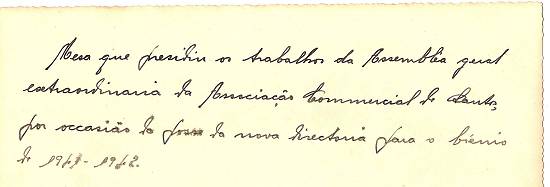 Mesa que presidiu os trabalhos da Assembléa geral
extraordinaria da Associação Commercial de Santos,
por occasião da posse da nova directoria para o biênio
de 1941-1942.